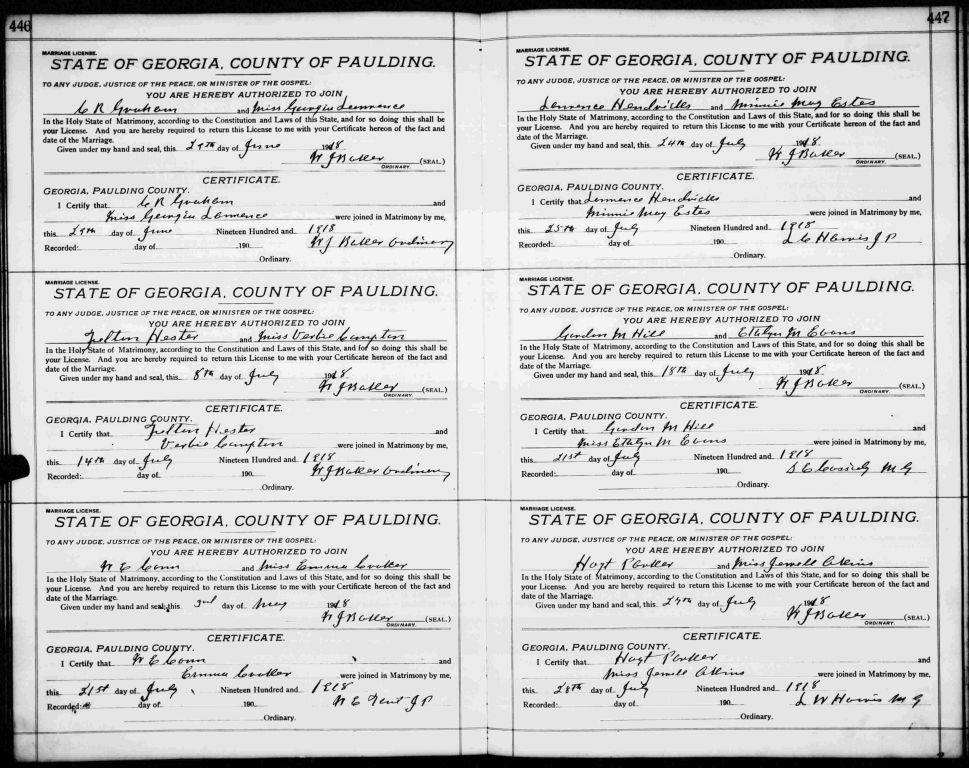 446
MARRIAGE LICENSE.
STATE OF GEORGIA, COUNTY OF PAULDING.
TO ANY JUDGE, JUSTICE OF THE PEACE, OR MINISTER OF THE GOSPEL:
YOU ARE HEREBY AUTHORIZED TO JOIN
C R Graham and Miss Georgia Lawrence
In the Holy State of Matrimony, according to the Constitution and Laws of this State, and for so doing this shall be
your License. And you are hereby required to return this License to me with your Certificate hereon of the fact and
date of the Marriage.
Given under my hand and seal, this 29th day of June 1918
W J Baker (SEAL.)
ORDINARY.
CERTIFICATE.
GEORGIA, PAULDING COUNTY.
I Certify that C R Graham and
Miss Georgia Lawrence were joined in Matrimony by me,
this 29th day of June Nineteen Hundred and 1918
Recorded: day of 190 W J Baker Ordinary
Ordinary.
MARRIAGE LICENSE.
STATE OF GEORGIA, COUNTY OF PAULDING.
TO ANY JUDGE, JUSTICE OF THE PEACE, OR MINISTER OF THE GOSPEL:
YOU ARE HEREBY AUTHORIZED TO JOIN
Fulton Hester and Miss Verbie Compton
In the Holy State of Matrimony, according to the Constitution and Laws of this State, and for so doing this shall be
your License. And you are hereby required to return this License to me with your Certificate hereon of the fact and
date of the Marriage.
Given under my hand and seal, this 8th day of July 1918
W J Baker (SEAL.)
ORDINARY.
CERTIFICATE.
GEORGIA, PAULDING COUNTY.
I Certify that Fulton Hester and
Verbie Compton were joined in Matrimony by me,
this 14th day of July Nineteen Hundred and 1918
Recorded: day of 190 W J Baker Ordinary
Ordinary.
MARRIAGE LICENSE.
STATE OF GEORGIA, COUNTY OF PAULDING.
TO ANY JUDGE, JUSTICE OF THE PEACE, OR MINISTER OF THE GOSPEL:
YOU ARE HEREBY AUTHORIZED TO JOIN
W E Conn and Miss Emma Cooker
In the Holy State of Matrimony, according to the Constitution and Laws of this State, and for so doing this shall be
your License. And you are hereby required to return this License to me with your Certificate hereon of the fact and
date of the Marriage.
Given under my hand and seal, this 3rd day of May 1918
W J Baker (SEAL.)
ORDINARY.
CERTIFICATE.
GEORGIA, PAULDING COUNTY.
I Certify that W E Conn and
Emma Cooker were joined in Matrimony by me,
this 21st day of July Nineteen Hundred and 1918
Recorded: day of 190 W E Gent J P
Ordinary.
447
MARRIAGE LICENSE.
STATE OF GEORGIA, COUNTY OF PAULDING.
TO ANY JUDGE, JUSTICE OF THE PEACE, OR MINISTER OF THE GOSPEL:
YOU ARE HEREBY AUTHORIZED TO JOIN
Lawrence Hendricks and Minnie May Estes
In the Holy State of Matrimony, according to the Constitution and Laws of this State, and for so doing this shall be
your License. And you are hereby required to return this License to me with your Certificate hereon of the fact and
date of the Marriage.
Given under my hand and seal, this 24th day of July 1918
W J Baker (SEAL.)
ORDINARY.
CERTIFICATE.
GEORGIA, PAULDING COUNTY.
I Certify that Lawrence Hendricks and
Minnie May Estes were joined in Matrimony by me,
this 25th day of July Nineteen Hundred and 1918
Recorded: day of 190 L C Harris J P
Ordinary.
MARRIAGE LICENSE.
STATE OF GEORGIA, COUNTY OF PAULDING.
TO ANY JUDGE, JUSTICE OF THE PEACE, OR MINISTER OF THE GOSPEL:
YOU ARE HEREBY AUTHORIZED TO JOIN
Gordon M Hill and Ethlyn M Evans
In the Holy State of Matrimony, according to the Constitution and Laws of this State, and for so doing this shall be
your License. And you are hereby required to return this License to me with your Certificate hereon of the fact and
date of the Marriage.
Given under my hand and seal, this 18th day of July 1918
W J Baker (SEAL.)
ORDINARY.
CERTIFICATE.
GEORGIA, PAULDING COUNTY.
I Certify that Gordon M Hill and
Miss Ethlyn M Evans were joined in Matrimony by me,
this 21st day of July Nineteen Hundred and 1918
Recorded: day of 190 S E Cassidy M G
Ordinary.
MARRIAGE LICENSE.
STATE OF GEORGIA, COUNTY OF PAULDING.
TO ANY JUDGE, JUSTICE OF THE PEACE, OR MINISTER OF THE GOSPEL:
YOU ARE HEREBY AUTHORIZED TO JOIN
Hoyt Parker and Miss Jewell Atkins
In the Holy State of Matrimony, according to the Constitution and Laws of this State, and for so doing this shall be
your License. And you are hereby required to return this License to me with your Certificate hereon of the fact and
date of the Marriage.
Given under my hand and seal, this 27th day of July 1918
W J Baker (SEAL.)
ORDINARY.
CERTIFICATE.
GEORGIA, PAULDING COUNTY.
I Certify that Hoyt Parker and
Miss Jewell Atkins were joined in Matrimony by me,
this 28th day of July Nineteen Hundred and 1918
Recorded: day of 190 L W Harris M G
Ordinary.